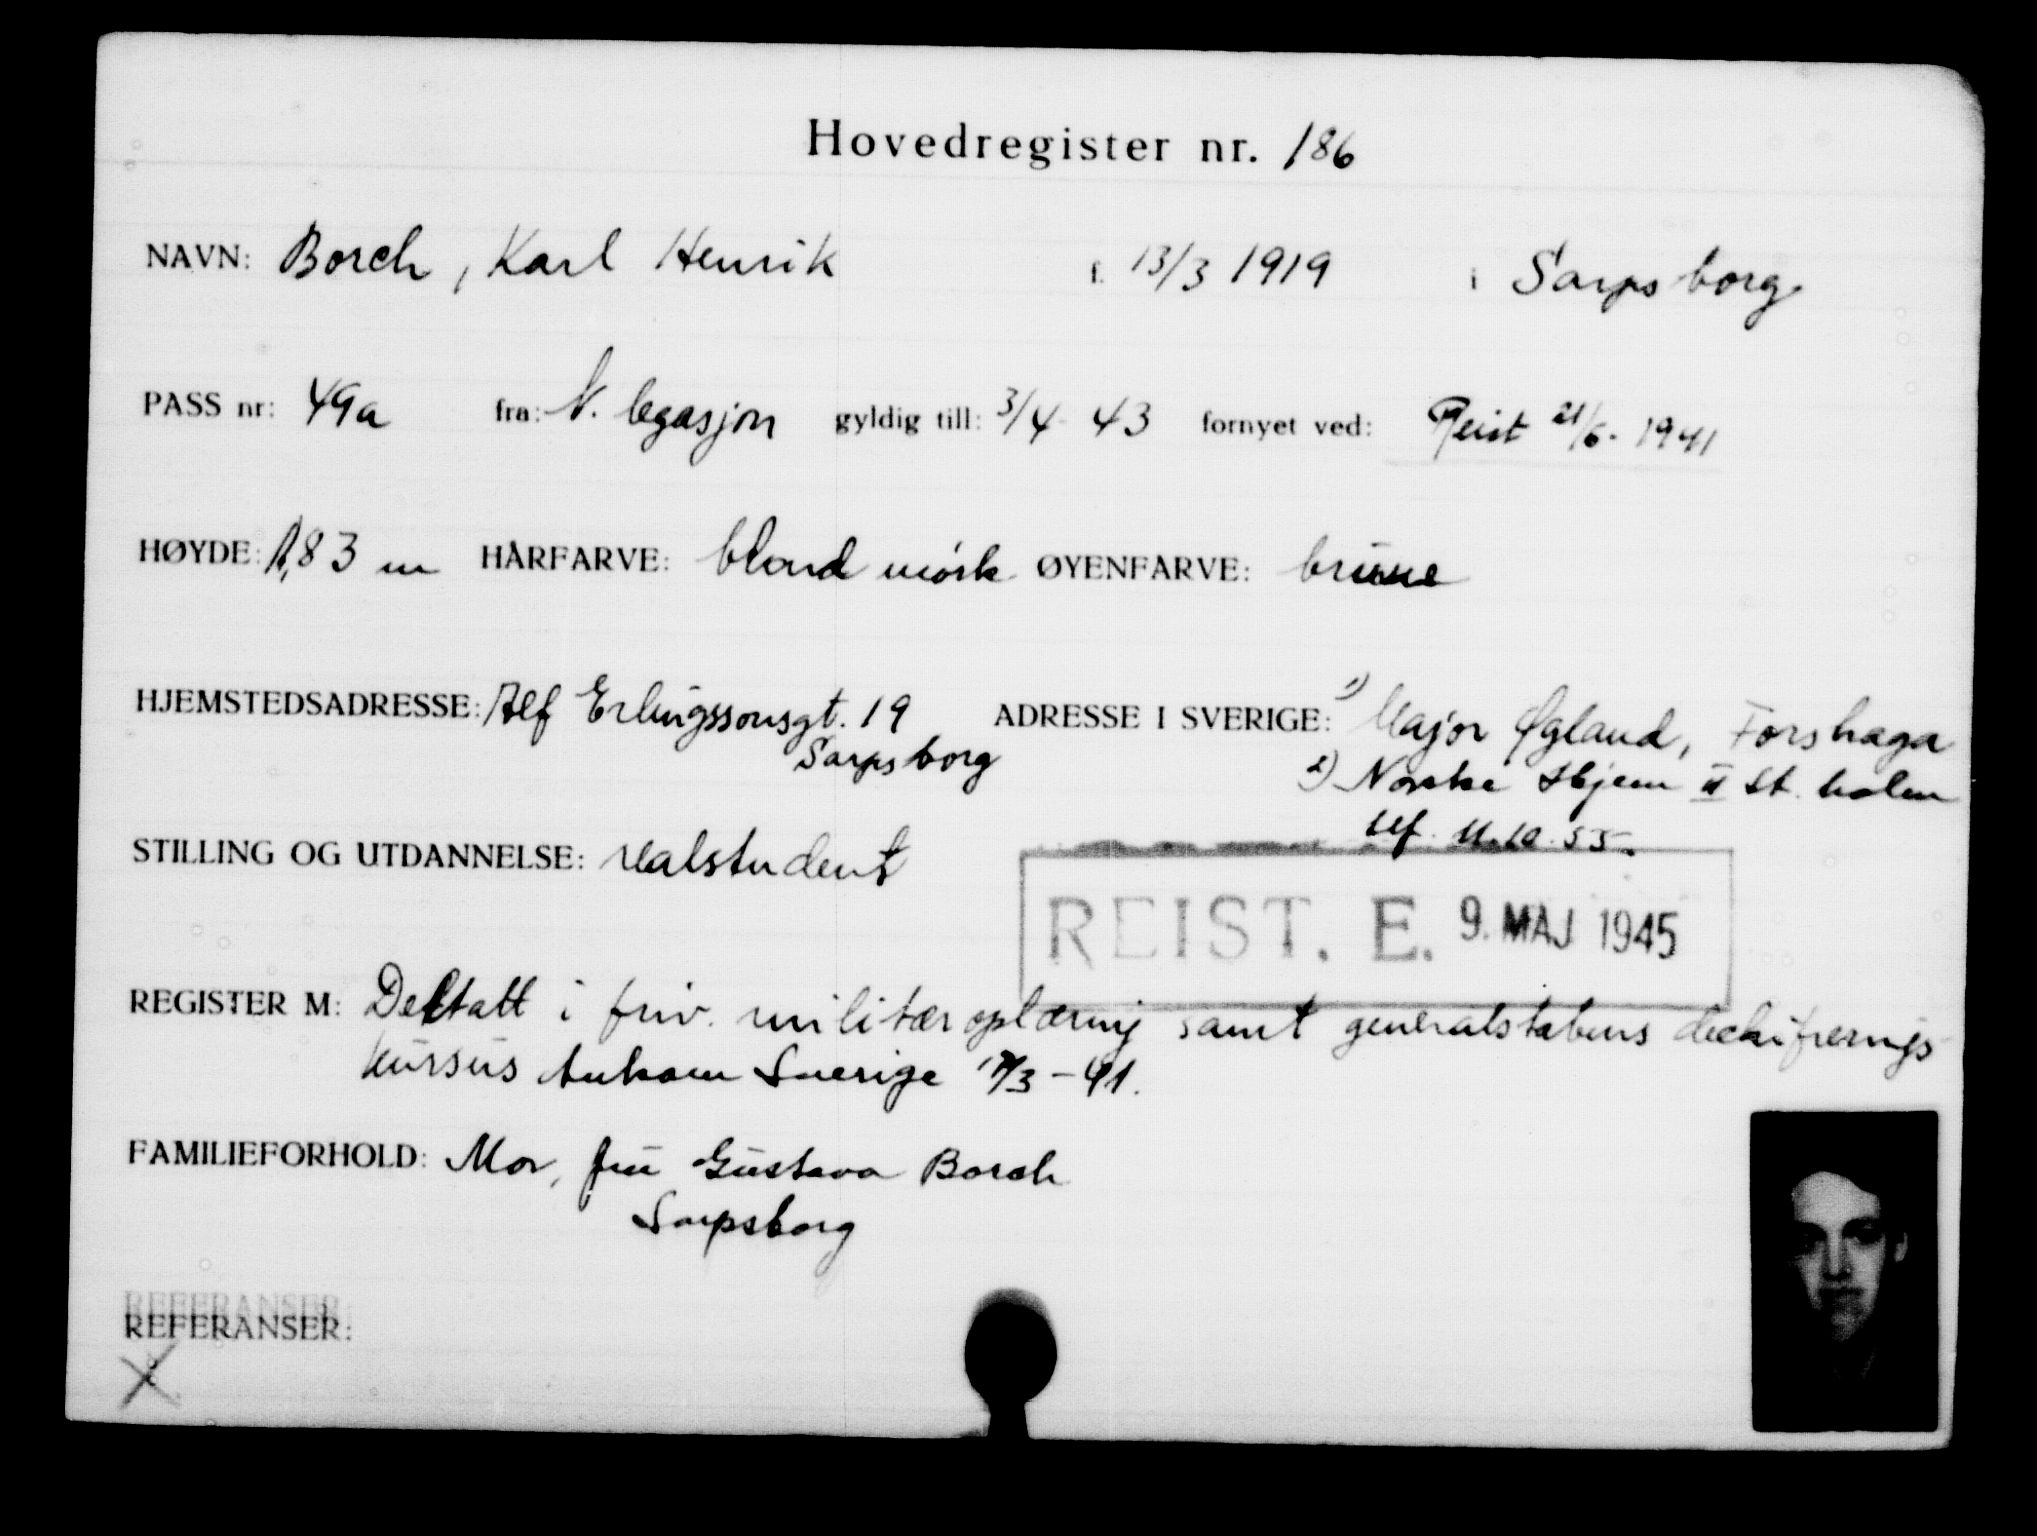 Hovedregister nr. 186
NAVN: Borch, Karl Henrik f. 13/3 1919 i Sarpsborg
PASS nr: 49a fra: N. legasjon gyldig till: 3/4 43 fornyet ved: Reist 21/6. 1941
HØYDE: 1,83 m HÅRFARVE: blond mørk ØYENFARVE: brune
HJEMSTEDSADRESSE: Alf Erlingssonsgt. 19 ADRESSE I SVERIGE: 1) Major Øgland, Forshaga
Sarpsborg
2) Norske Hjem II St. holm
tlf. 11.10.55.
STILLING OG UTDANNELSE: realstudent
REIST. E. 9. MAJ 1945
REGISTER M: Deltatt i friv. militær oplæring samt generalstabens dechifrerings
kursus Ankom Sverige /3 - 41.
FAMILIEFORHOLD: Mor, fru Gustava Borch
Sarpsborg
REFERANSER:
REFERANSER:
X